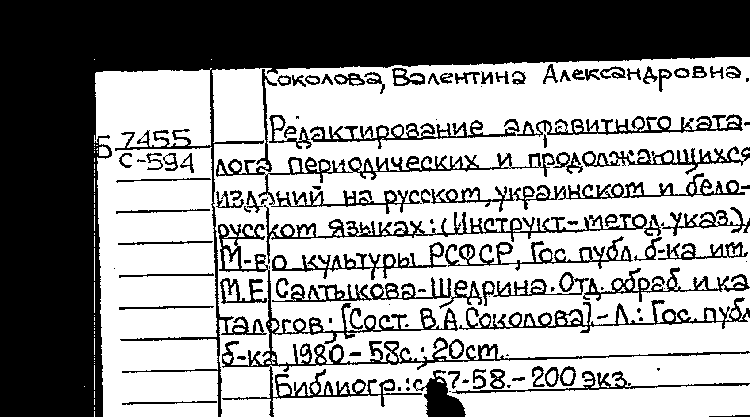 Соколова, Валентина Александровна.
Б 7455
С-594
Редактирование алфавитного ката-
лога периодических и продолжающихся
изданий на русском, украинском и бело-
русском языках: (Инструкт-метод. указ.)/
М-во культуры РСФСР, Гос. публ. б-ка им.
М.Е. Салтыкова-Щедрина. Отд. обраб. и ка
талогов; [Сост. В.А. Соколова].- Л.: Гос. публ
б-ка, 1980 - 58с.; 20см.
Библиогр.: с 57-58.- 200 экз.